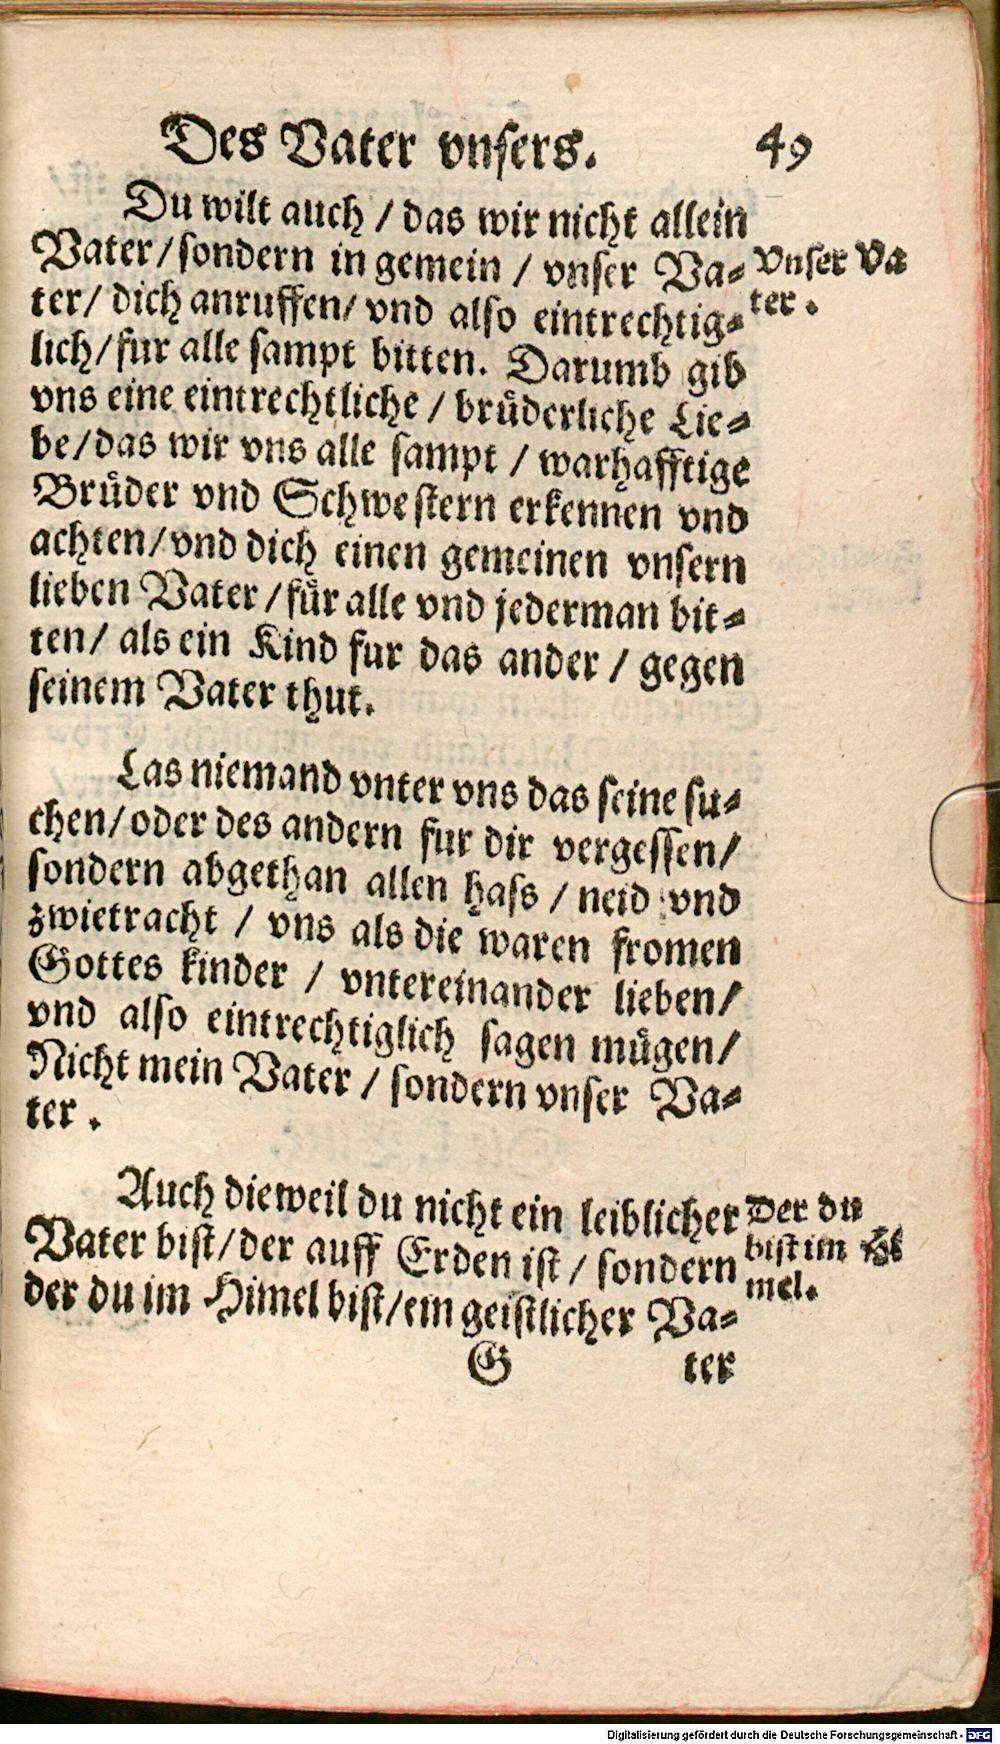 Des Vater vnsers. 49
Du wilt auch / das wir nicht allein
Vater / sondern in gemein / vnser Va⸗
ter / dich anruffen / vnd also eintrechtig⸗
lich / fur alle sampt bitten. Darumb gib
vns eine eintrechtliche / brüderliche Lie⸗
be / das wir vns alle sampt / warhafftige
Brüder vnd Schwestern erkennen vnd
achten / vnd dich einen gemeinen vnsern
lieben Vater / für alle vnd jederman bit⸗
ten / als ein Kind fur das ander / gegen
seinem Vater thut.
Vnser Va
ter.
Las niemand vnter vns das seine su⸗
chen / oder des andern fur dir vergessen /
sondern abgethan allen hass / neid vnd
zwietracht / vns als die waren fromen
Gottes kinder / vntereinander lieben /
vnd also eintrechtiglich sagen mügen /
Nicht mein Vater / sondern vnser Va⸗
ter.
Auch dieweil du nicht ein leiblicher
Vater bist / der auff Erden ist / sondern
der du im Himel bist / ein geistlicher Va⸗
Der du
bist im Hi
mel.
G ter
Digitalisierung gefördert durch die Deutsche Forschungsgemeinschaft - DFG